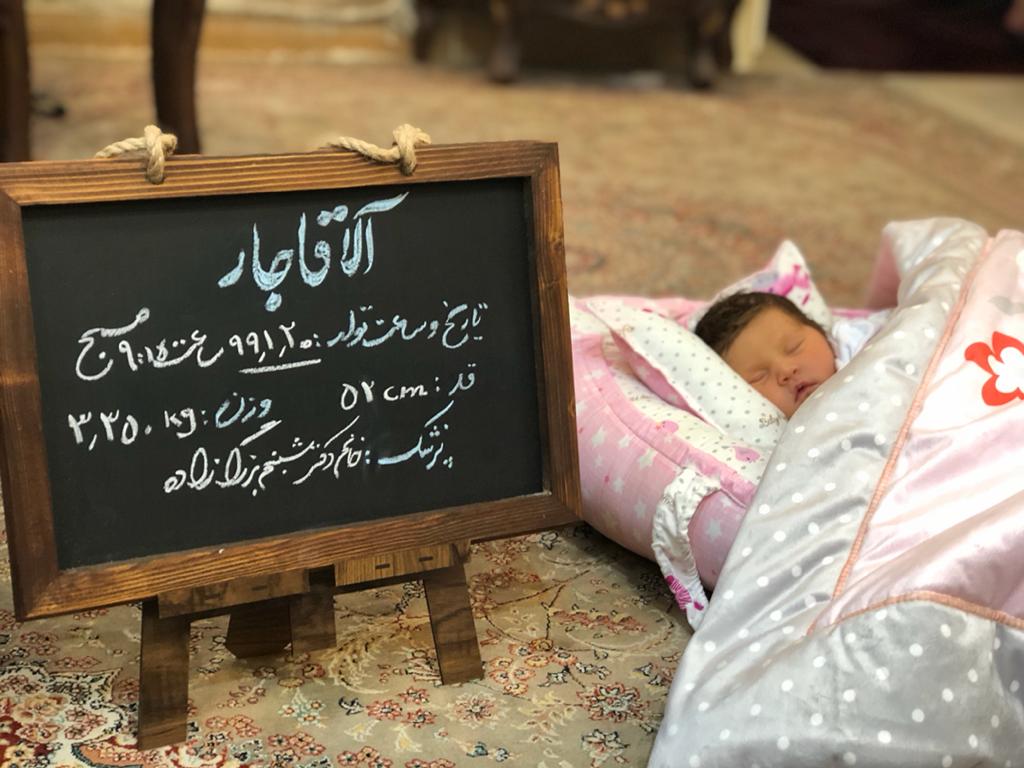 آلا قاجار
تاریخ و ساعت تولد: ۹۹,۱,۲۰ ساعت ۹:۱۵ صبح
قد: ۵۲ cm
وزن: ۳,۳۵۰ kg
پزشک: خانم دکتر شبنم بزرگزاده